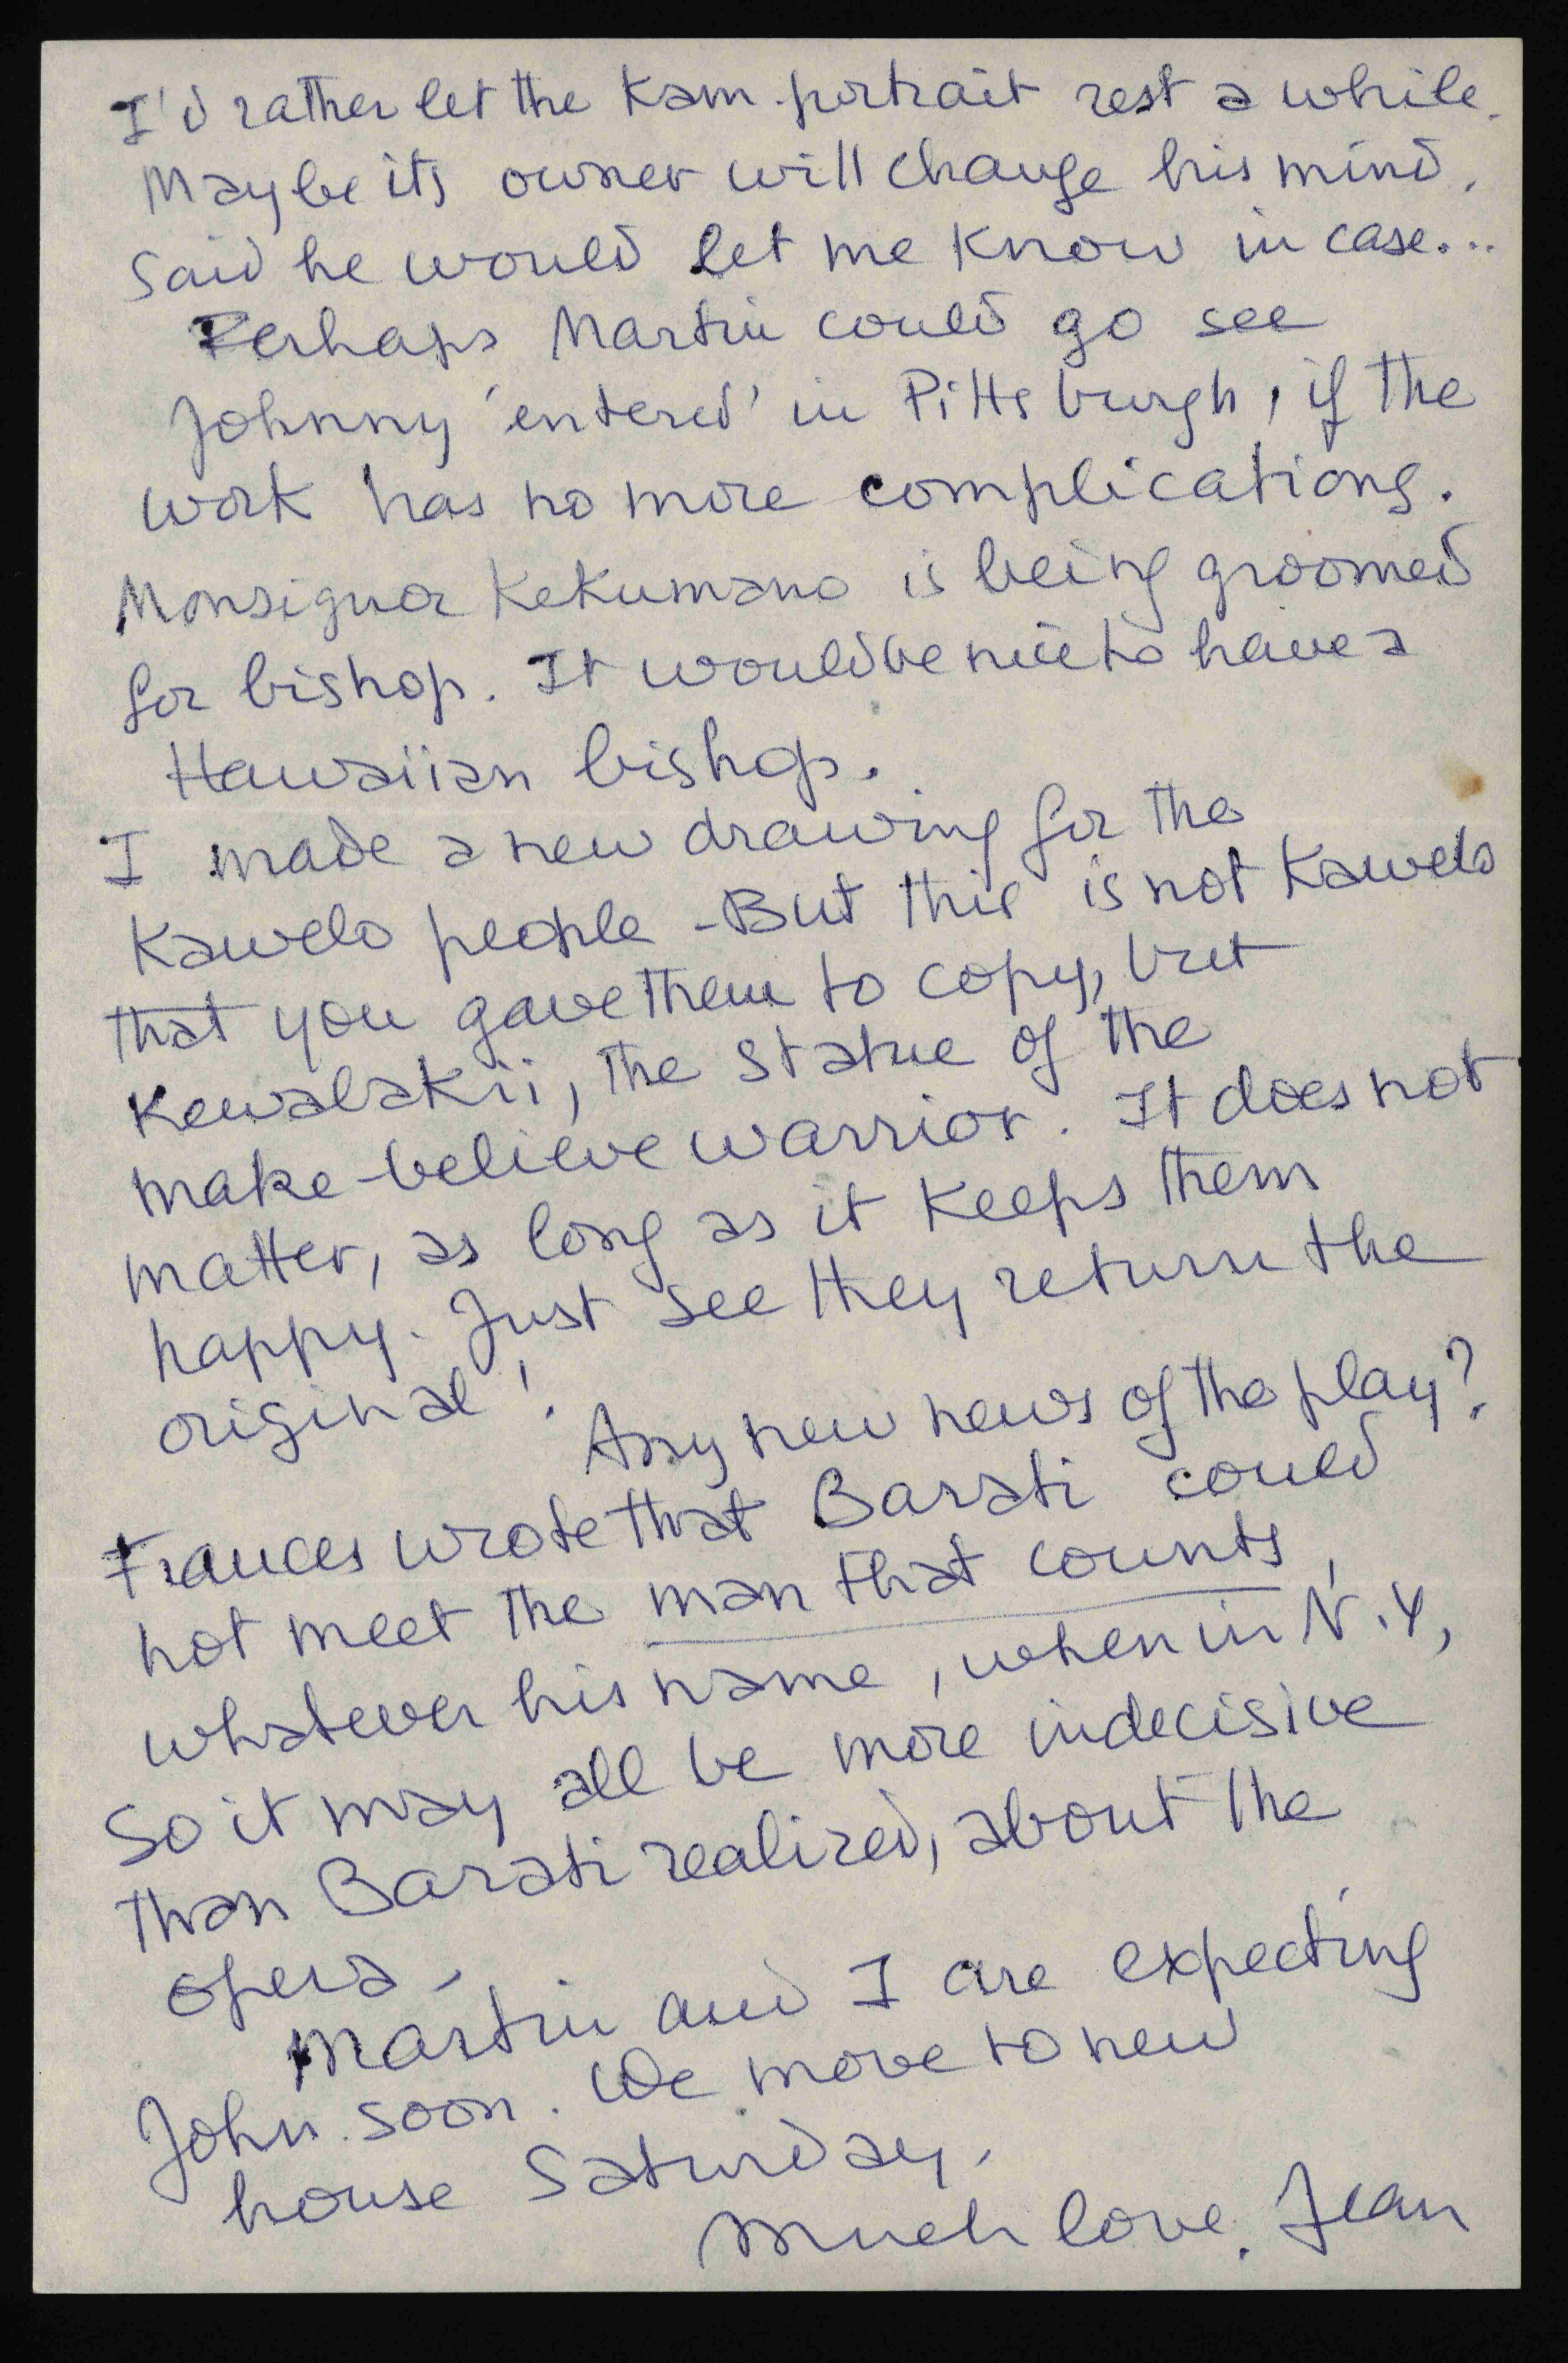 I'd rather let the Kam. portrait rest a while.
Maybe its owner will change his mind.
Said he would let me know in case...
Perhaps Martin could go see
Johnny 'entered' in Pittsburgh, if the
work has no more complications.
Monsignor Kekumano is being groomed
for bishop. It would be nice to have a
Hawaiian bishop.
I made a new drawing for the
Kawelo people - But this is not Kawelo
that you gave them to copy, but
Kewalakii, the statue of the
make-believe warrior. It does not
matter, as long as it keeps them
happy. Just see they return the
original!
Any new news of the play?
Frances wrote that Barati could
not meet the man that counts,
whatever his name, when in N.Y,
So it may all be more indecisive
than Barati realized, about the
opera.
Martin and I are expecting
John soon. We move to new
house Saturday.
Much love. Jean